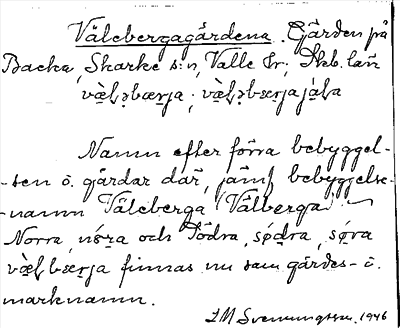 Välebergagärdena. Gärden på
Backa, Skarke s:n, Valle hr; Skb. län
væ̀l̥əbærja; væ̀l̥əbærjajæ̀l̥a
Namn efter förra bebyggel-
-sen o. gärdar där, jämf bebyggelse-
-namn Väleberga (Välberga)
Norra, nɷ́r̥a och Södra, sǿdra, sǿra
væ̀l̥bærja finnas nu som gärdes- o.
marknamn.
1946